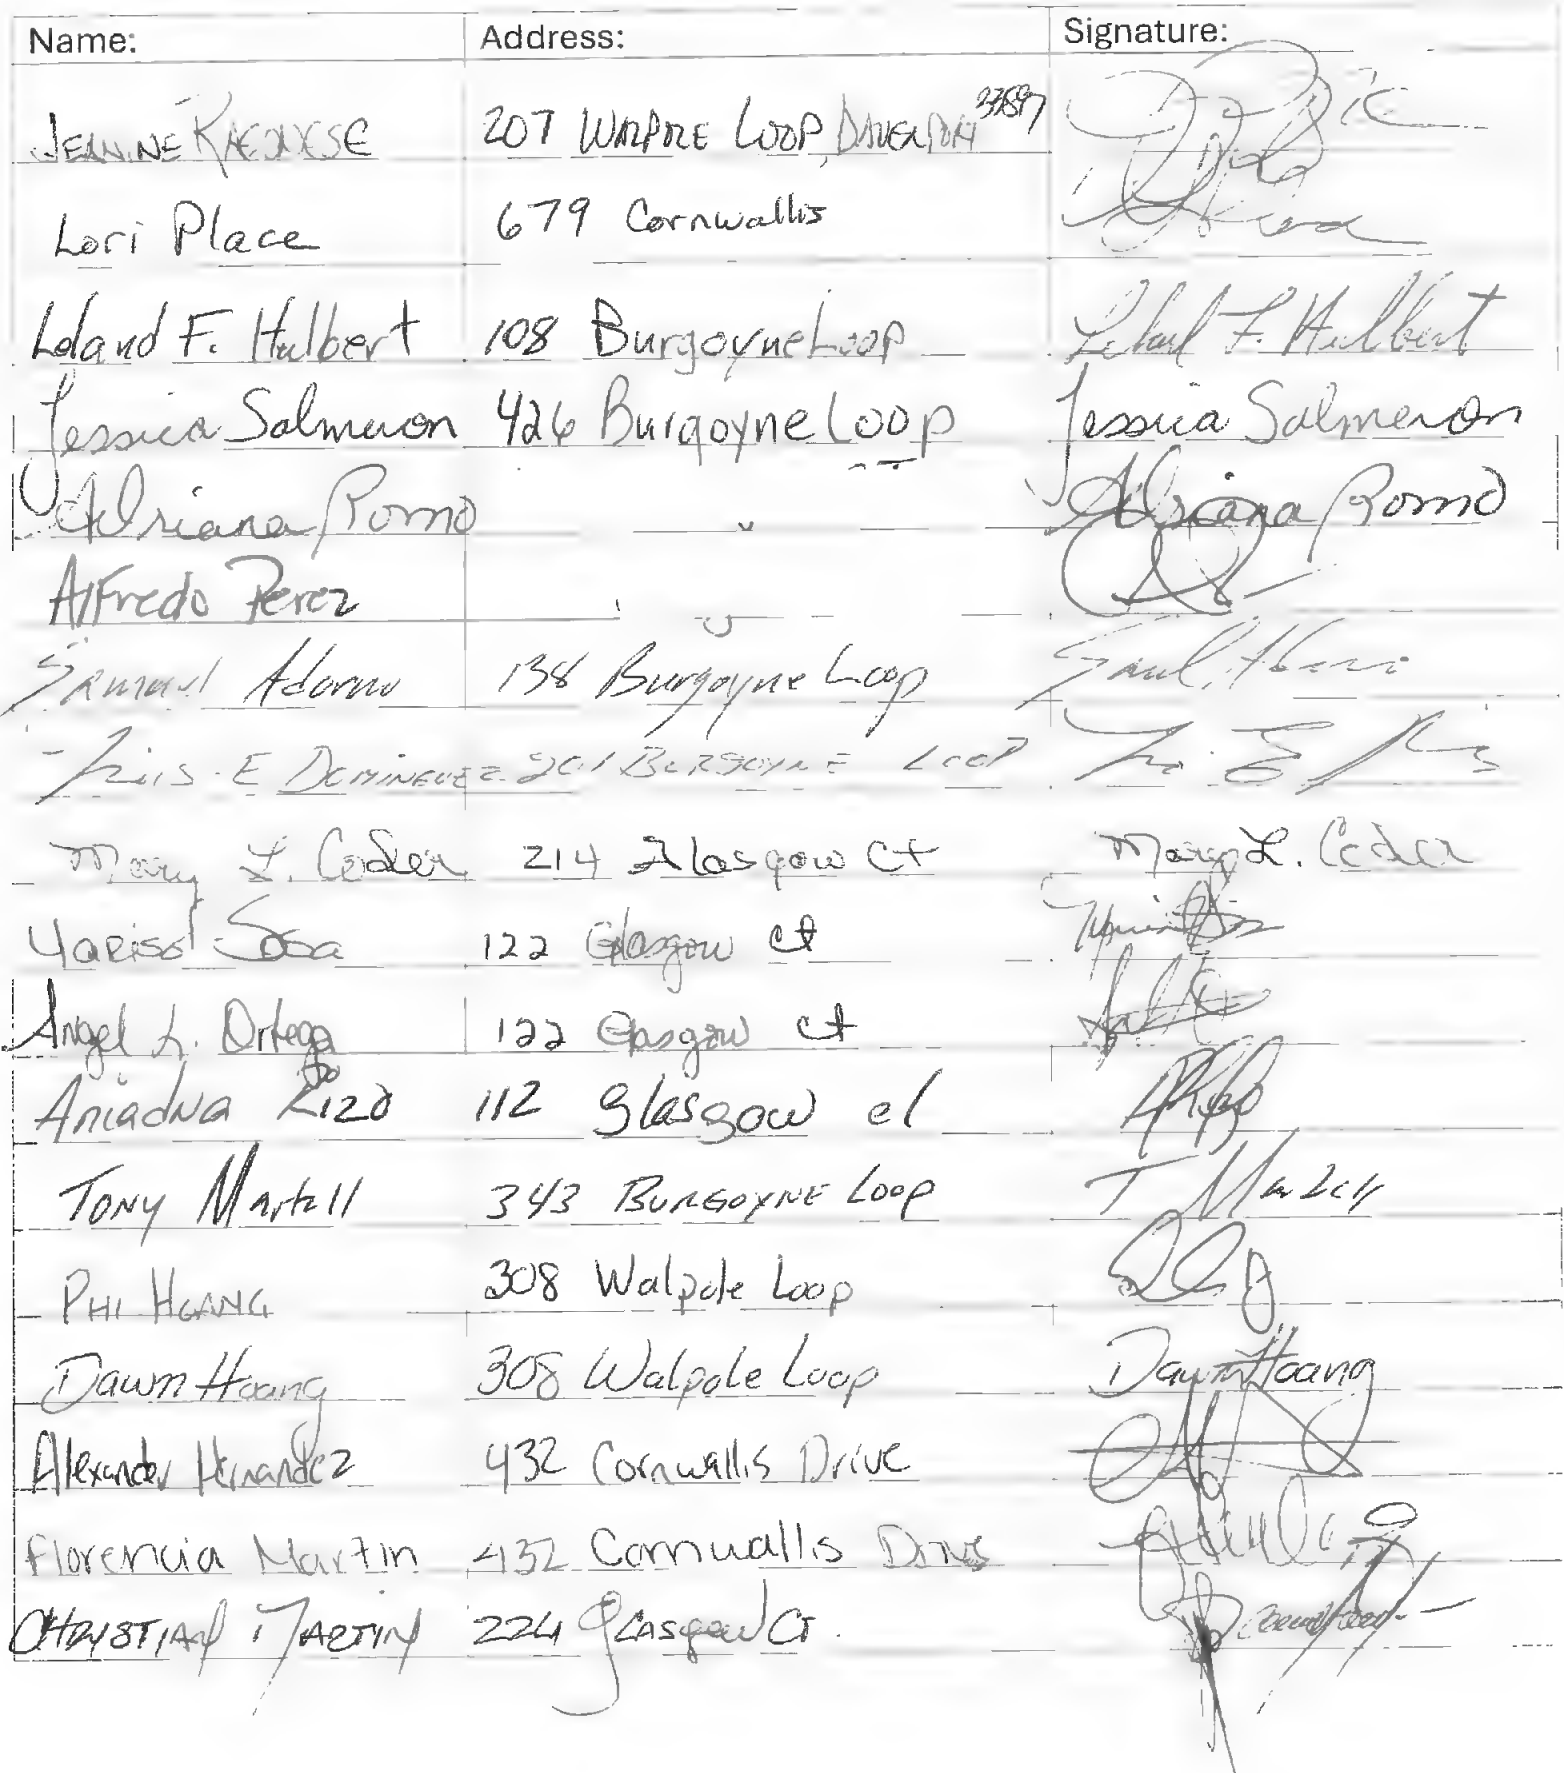 Name: Address: Signature:
JEANINE 207 WALPOLE LOOP, DAVENPORT 33897
Lori Place 679 Cornwallis
Leland F. Hulbert 108 Burgoyne Loop Leland F. Hulbert
Jessica Salmeron 426 Burgoyne Loop Jessica Salmeron
Adriana Romo " Adriana Romo
Alfredo Perez "
Samuel Adorno 138 Burgoyne Loop
Luis E DOMINGUEZ 201 BURGOYNE LOOP
Mary L. Ceder 214 Glasgow Ct Mary L. Ceder
Yarisol Sosa 122 Glasgow Ct
Angel L. Ortega 122 Glasgow Ct
Ariadna Rizo 112 Glasgow ct
TONY Martell 343 BURGOYNE LOOP T Martell
PHI HOANG 308 Walpole Loop
Dawn Hoang 308 Walpole Loop Dawn Hoang
Alexander Hernandez 432 Cornwallis Drive
Florencia Martin 432 Cornwallis
CHRYSTIAN MARTIN 224 GLASGOW CT.